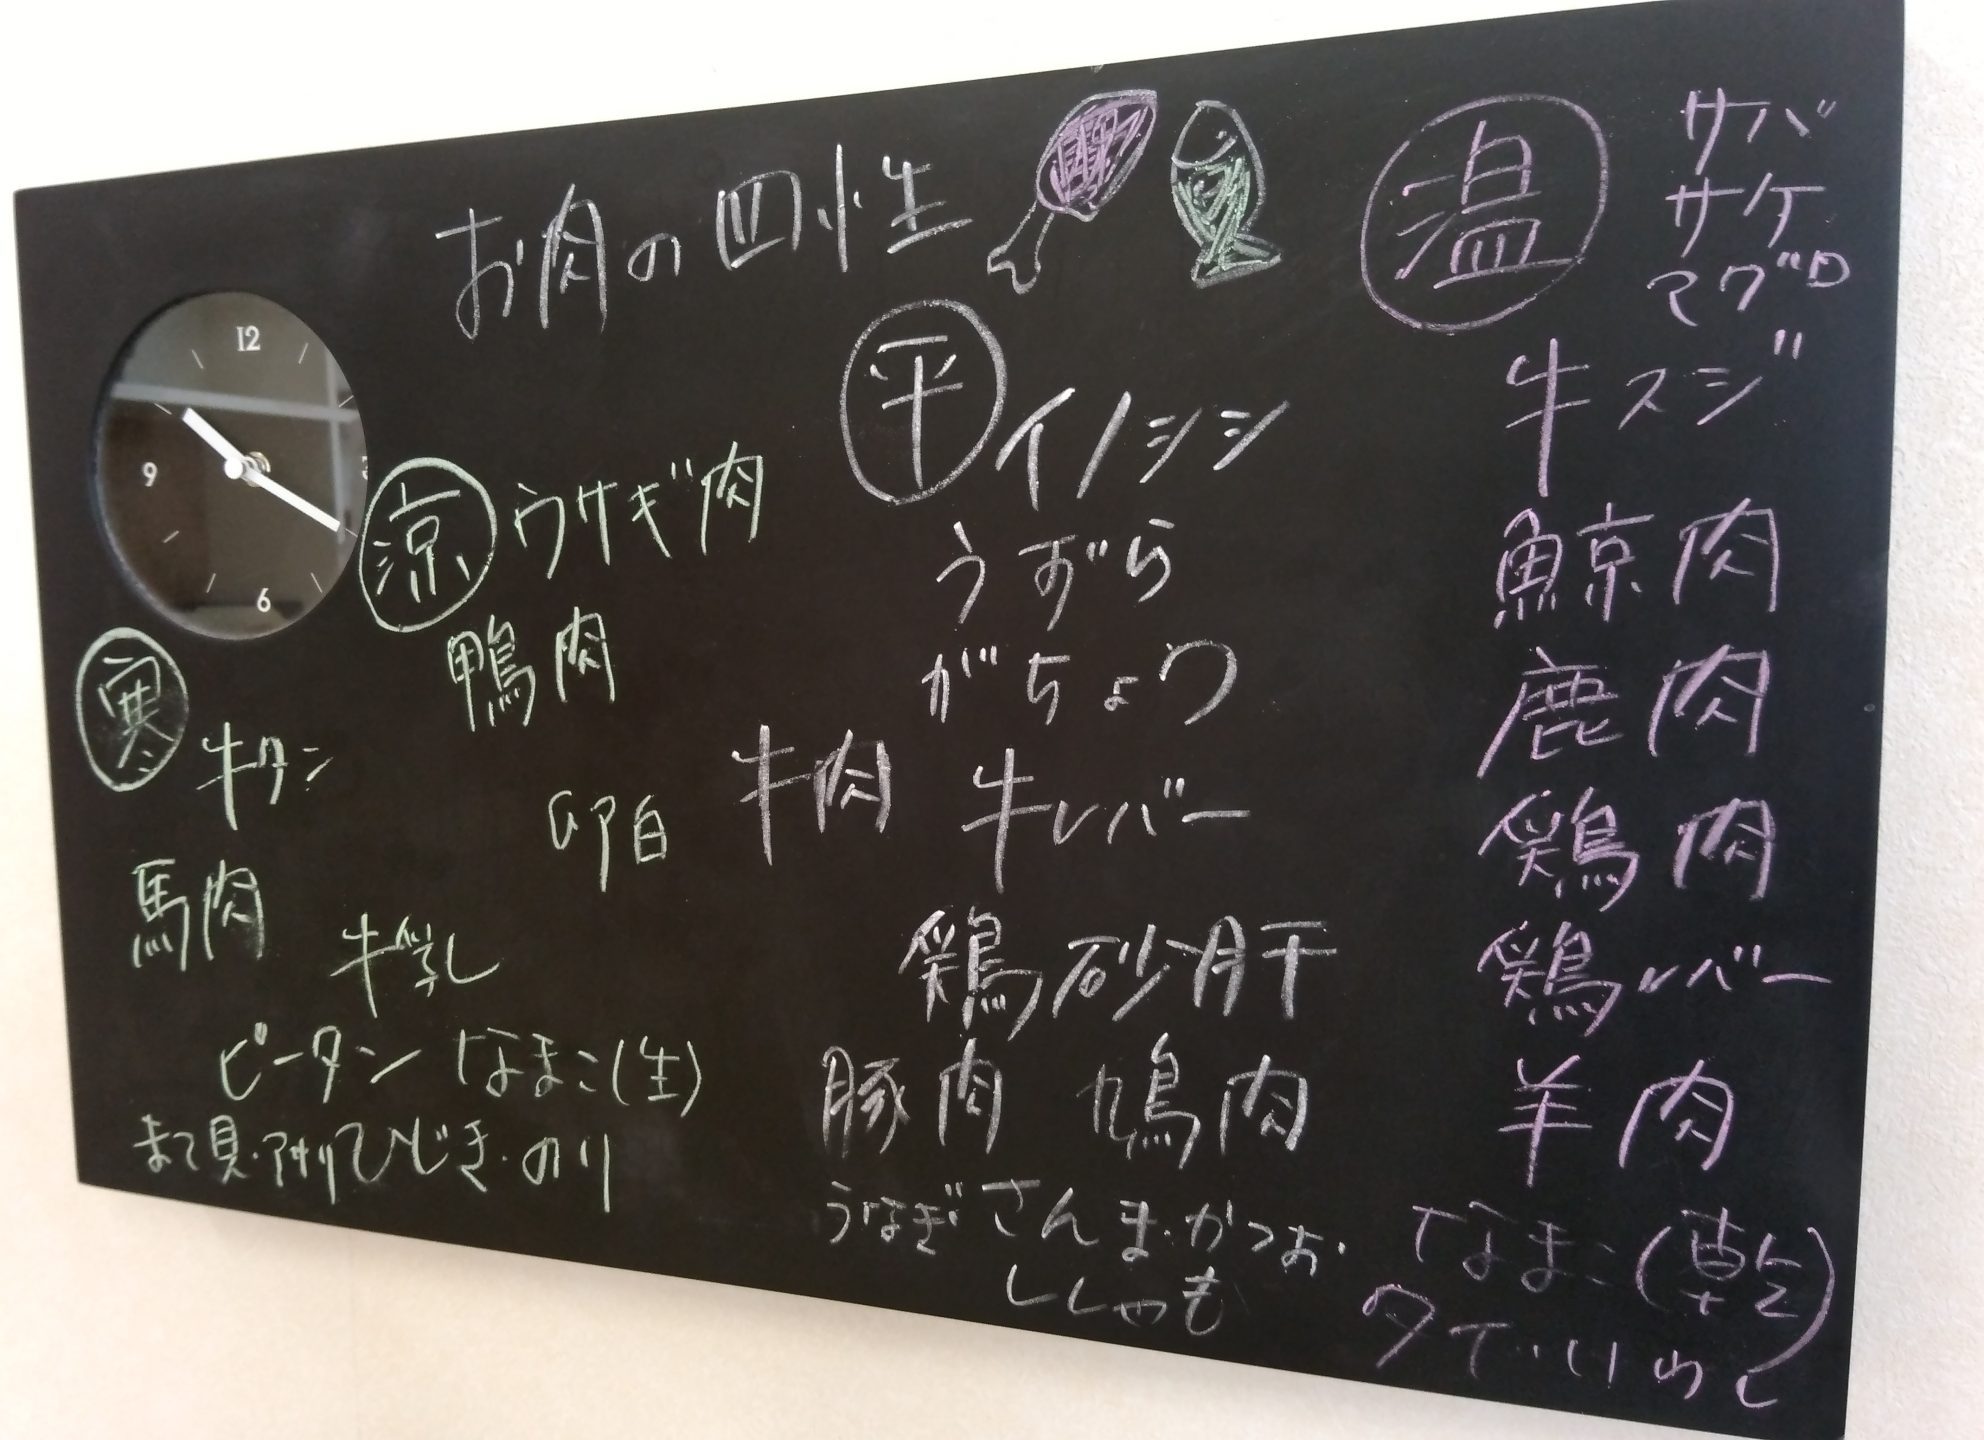 お肉の四性
12
9
3
6
寒
牛タン
馬肉
牛乳
ピータン なまこ(生)
まて貝・アサリ ひじき・のり
涼
ウサギ肉
鴨肉
卵白
平
イノシシ
うずら
がちょう
牛肉 牛レバー
鶏砂肝
豚肉 鳩肉
うなぎ さんま・かつお・
ししゃも
温
サバ
サケ
マグロ
牛スジ
鯨肉
鹿肉
鶏肉
鶏レバー
羊肉
なまこ(乾)
タイ・いわし